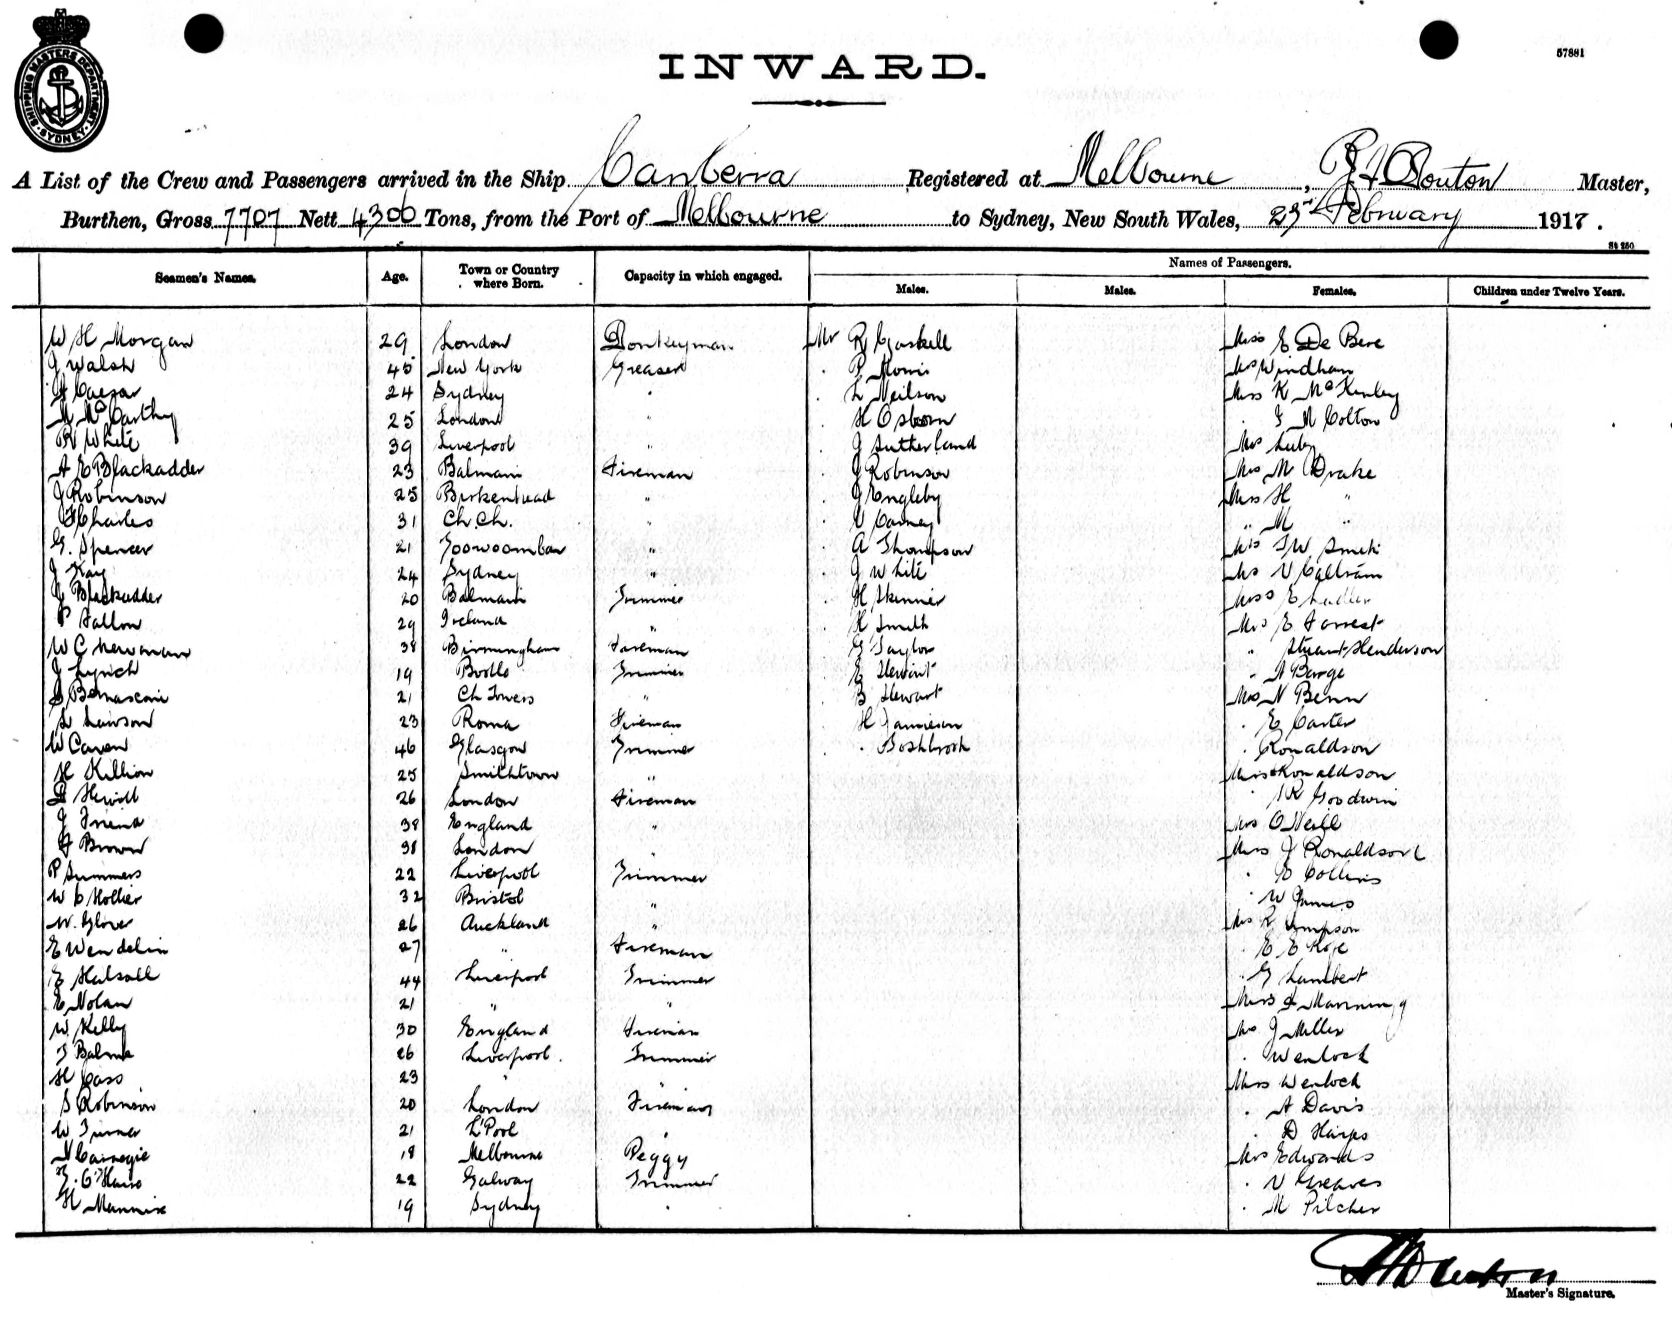 SHIPPING MASTERS DEPARTMENT
SYDNEY
57881
INWARD.
A List of the Crew and Passengers arrived in the Ship Canberra Registered at Melbourne, Master,
Burthen, Gross 7707 Nett 4306 Tons, from the Port of Melbourne to Sydney, New South Wales, 23rd February 1917.
St 250
Seamen's Names. Age. Town or Country where Born. Capacity in which engaged. Names of Passengers.
Males. Males. Females. Children under Twelve Years.
W H Morgan 29 London Donkeyman Mr R Gaskell Miss E De Bere
J Walsh 45 New York Greaser . P Morris Mrs Windham
Caesar 24 Sydney " . L Neilson Miss K McKinley
McCarthy 25 London " . H Osborn . M Colton
R White 39 Liverpool " . J Sutherland Mrs
A E Blackadder 23 Balmain Fireman . J Robinson Mrs M Drake
J Robinson 25 Birkenhead " . J Engleby Miss H "
Charles 31 Ch. Ch. " . Carney " M
G. Spencer 21 Toowoomba " . A Thompson Mrs W Smith
J Kay 24 Sydney " . J White Mrs V
J Blackadder 20 Balmain Trimmer . H Skinner Miss E
P Fallon 29 Ireland " . H Smith Mrs E Forrest
W C Newman 38 Birmingham Fireman . G Taylor " Stuart Henderson
J Lynch 19 Trimmer . E Stewart " Barge
Bernasconi 21 Ch Towers " . B Stewart Mrs N Benn
Lawson 23 Roma Fireman . H Jamieson . E Carter
W Caven 46 Glasgow Trimmer . . Ronaldson
H Killion 25 Smithtown " Miss Ronaldson
Hewitt 26 London Fireman . Goodwin
J Friend 38 England " Mrs O'Neill
Brown 38 London " Miss J Ronaldson
P Summers 22 Liverpool Trimmer . Collins
W C Hollier 32 Bristol " . W James
W. Glover 26 Auckland " Mrs R Simpson
E Wendelin 27 " Fireman . E E
E Halsall 44 Liverpool Trimmer . G Lambert
E Nolan 21 " " Miss Manning
W. Kelly 30 England Fireman Mrs J Miller
26 Liverpool. Trimmer . Wenlock
H Cass 23 " " Miss Wenlock
S Robinson 20 London Fireman . A Davis
W Turner 21 L'Pool " . D
N Carnegie 18 Melbourne Peggy Mrs Edwards
22 Galway Trimmer . V Greaves
H Mannix 19 Sydney " . M Pilcher
Master's Signature.